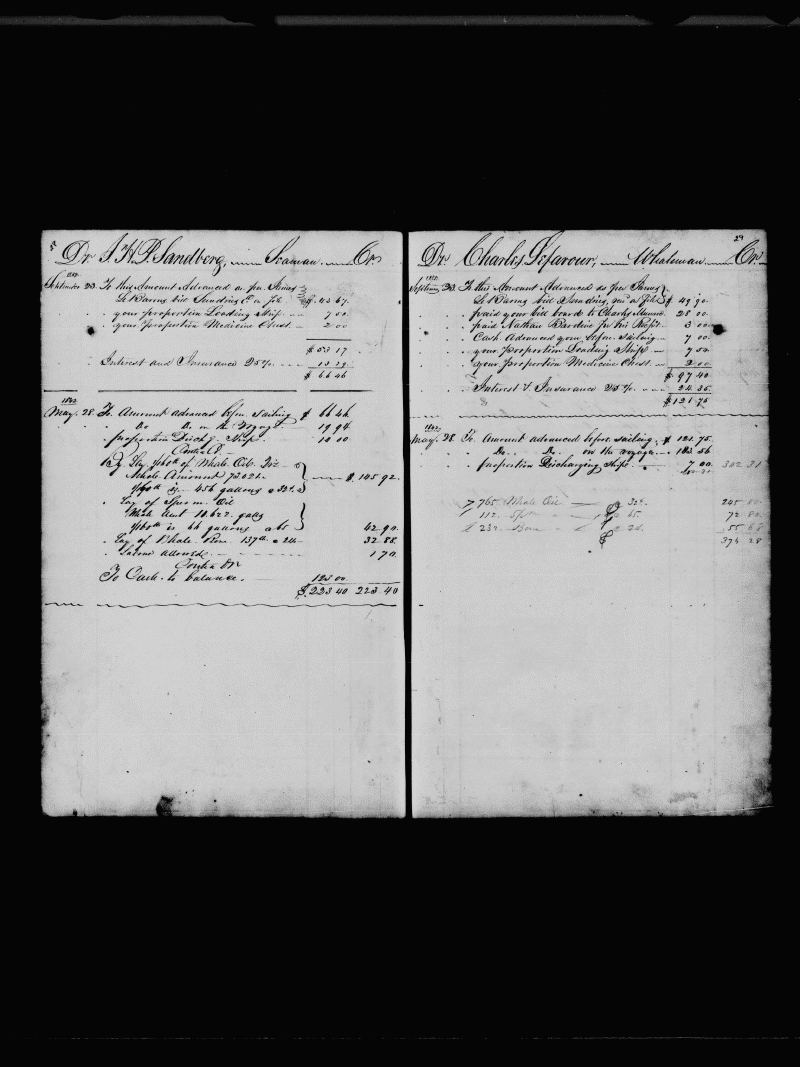 5
Dr J. H. P. Sandberg, Seaman. Cr
September 23. To this Amount Advanced as per James
Le Barns bill Sundries &c a file $ 43 67.
" " your proportion Loading Ship. 7 00
" " your proportion Medicine Chest. 2 00
$ 53 17
" Interest and Insurance 25%. 13 29
$ 66 46
1842
May. 28. To Amount advanced before sailing $ 66 46
" Do Do on the Voyage 19 94
" proportion Disch'g Ship. 12 00
Contra Cr
By Lay of Whale Oil. Viz
Whole Amount
is 456 gallons a 32c. $ 145 92.
" Lay of Sperm Oil
Whole Amt 10.622. galls
is 66 gallons a 65 42 90.
" Lay of Whale Bone 137 lbs a 24 32 88.
" allowed 1 70.
Contra Dr
To Cash to balance. 125 00
$ 223 40 223 40
29
Dr Charles Lefavour, Whaleman Cr
September 23. To this Amount Advanced as per James
Le Barns bill Sundries, on a file $ 49 90.
" " paid your bill board to Charles 28 00
" " paid Nathan 3 00
" " Cash Advanced you before sailing 7 00
" " your proportion Loading Ship 7 50
" " your proportion Medicine Chest 2 00
$ 97 40
" Interest & Insurance 25%. 24 35
$ 121 75
1842
May 28. To Amount advanced before sailing $ 121 75.
" Do. Do. on the voyage 183 56
" proportion Discharging Ship 7 00 302 31
765 Whale Oil 32c 245 80
112 Sperm 65 72 80
232 Bone 24 55 68
$ 374 28